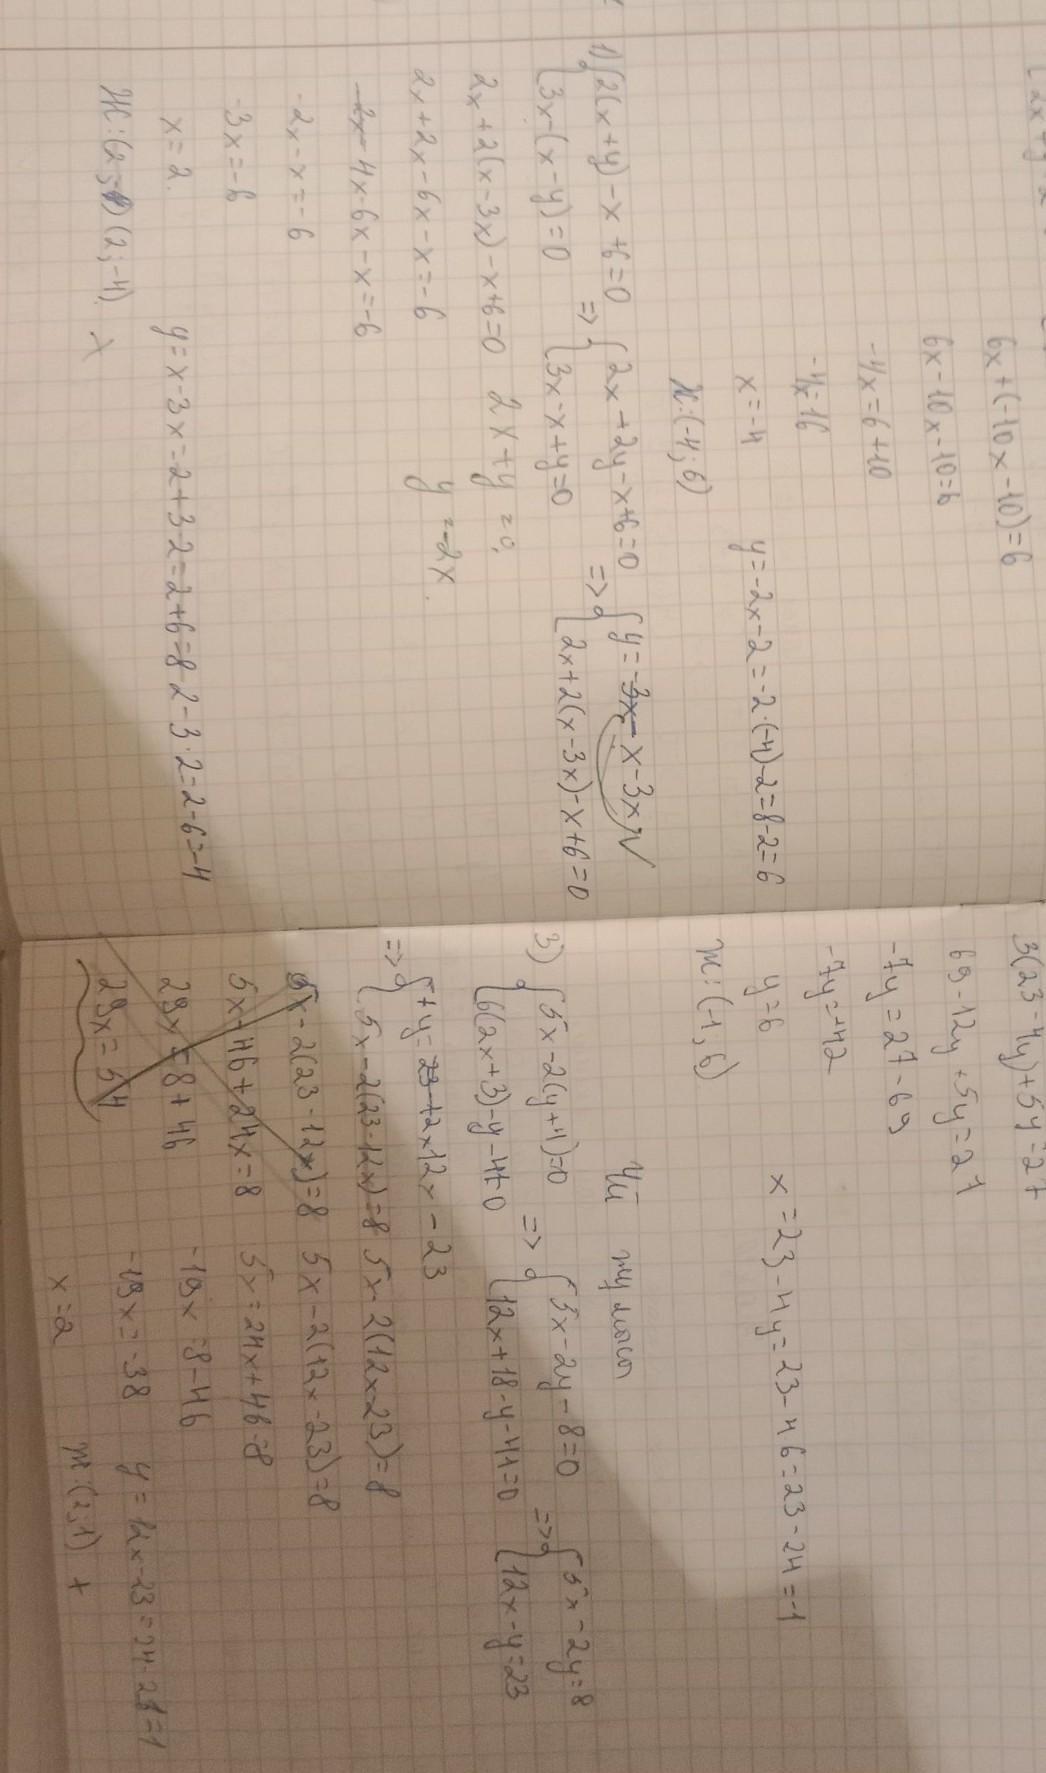 6x+(-10x-10)=6
6x-10x-10=6
-4x=6+10
-4x=16
x=-4
y=-2x-2=-2·(-4)-2=8-2=6
ж:(-4;6)
1) {2(x+y)-x+6=0 => {2x+2y-x+6=0 => {y=-3x- x-3x
{3x-(x-y)=0 {3x-x+y=0 {2x+2(x-3x)-x+6=0
2x+2(x-3x)-x+6=0 2x+y=0;
2x+2x-6x-x=-6 y=-2x.
-2x-4x-6x-x=-6
-2x-x=-6
-3x=-6
x=2. y=x-3x=2+3·2=2+6=8 2-3·2=2-6=-4
Ж:(2;8) (2;-4)
3(23-4y)+5y=27
69-12y+5y=27
-7y=27-69
-7y=+42
y=6 x=23-4y=23-4·6=23-24=-1
ж:(-1;6)
Үй жұмысы
3) {5x-2(y+4)=0 => {5x-2y-8=0 => {5x-2y=8
{6(2x+3)-y-41=0 {12x+18-y-41=0 {12x-y=23
=> {+y=23+2x12x-23
{5x-2(23-12x)=8 5x-2(12x-23)=8
5x-2(23-12x)=8 5x-2(12x-23)=8
5x-46+24x=8 5x-24x+46=8
29x=8+46 -19x=8-46
29x=54 -19x=-38 y=12x-23=24-23=1
x=2 ж:(2;1) +